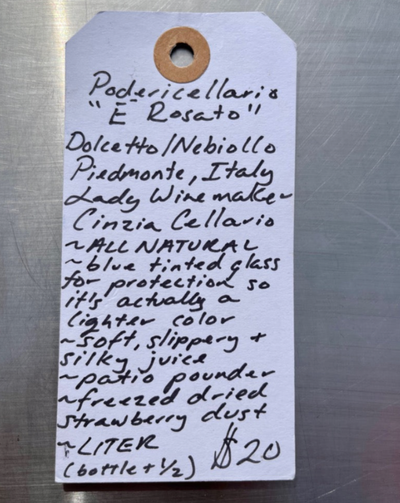 Podericellario
"E Rosato"
Dolcetto/Nebiollo
Piedmonte, Italy
Lady Winemaker
Cinzia Cellario
~ALL NATURAL
~blue tinted glass
for protection so
it's actually a
lighter color
~soft, slippery +
silky juice
~patio pounder
~freezed dried
strawberry dust
~LITER
(bottle + 1/2) $20